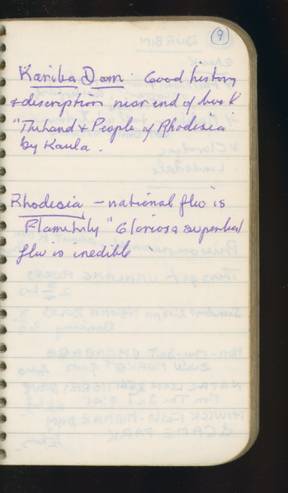 9
Kariba Dam: Good history
& description near end of book
"The Land & People of Rhodesia
by Kaula.
Rhodesia - national flwr is
Flame Lily "Gloriosa superba"
flwr is inedible